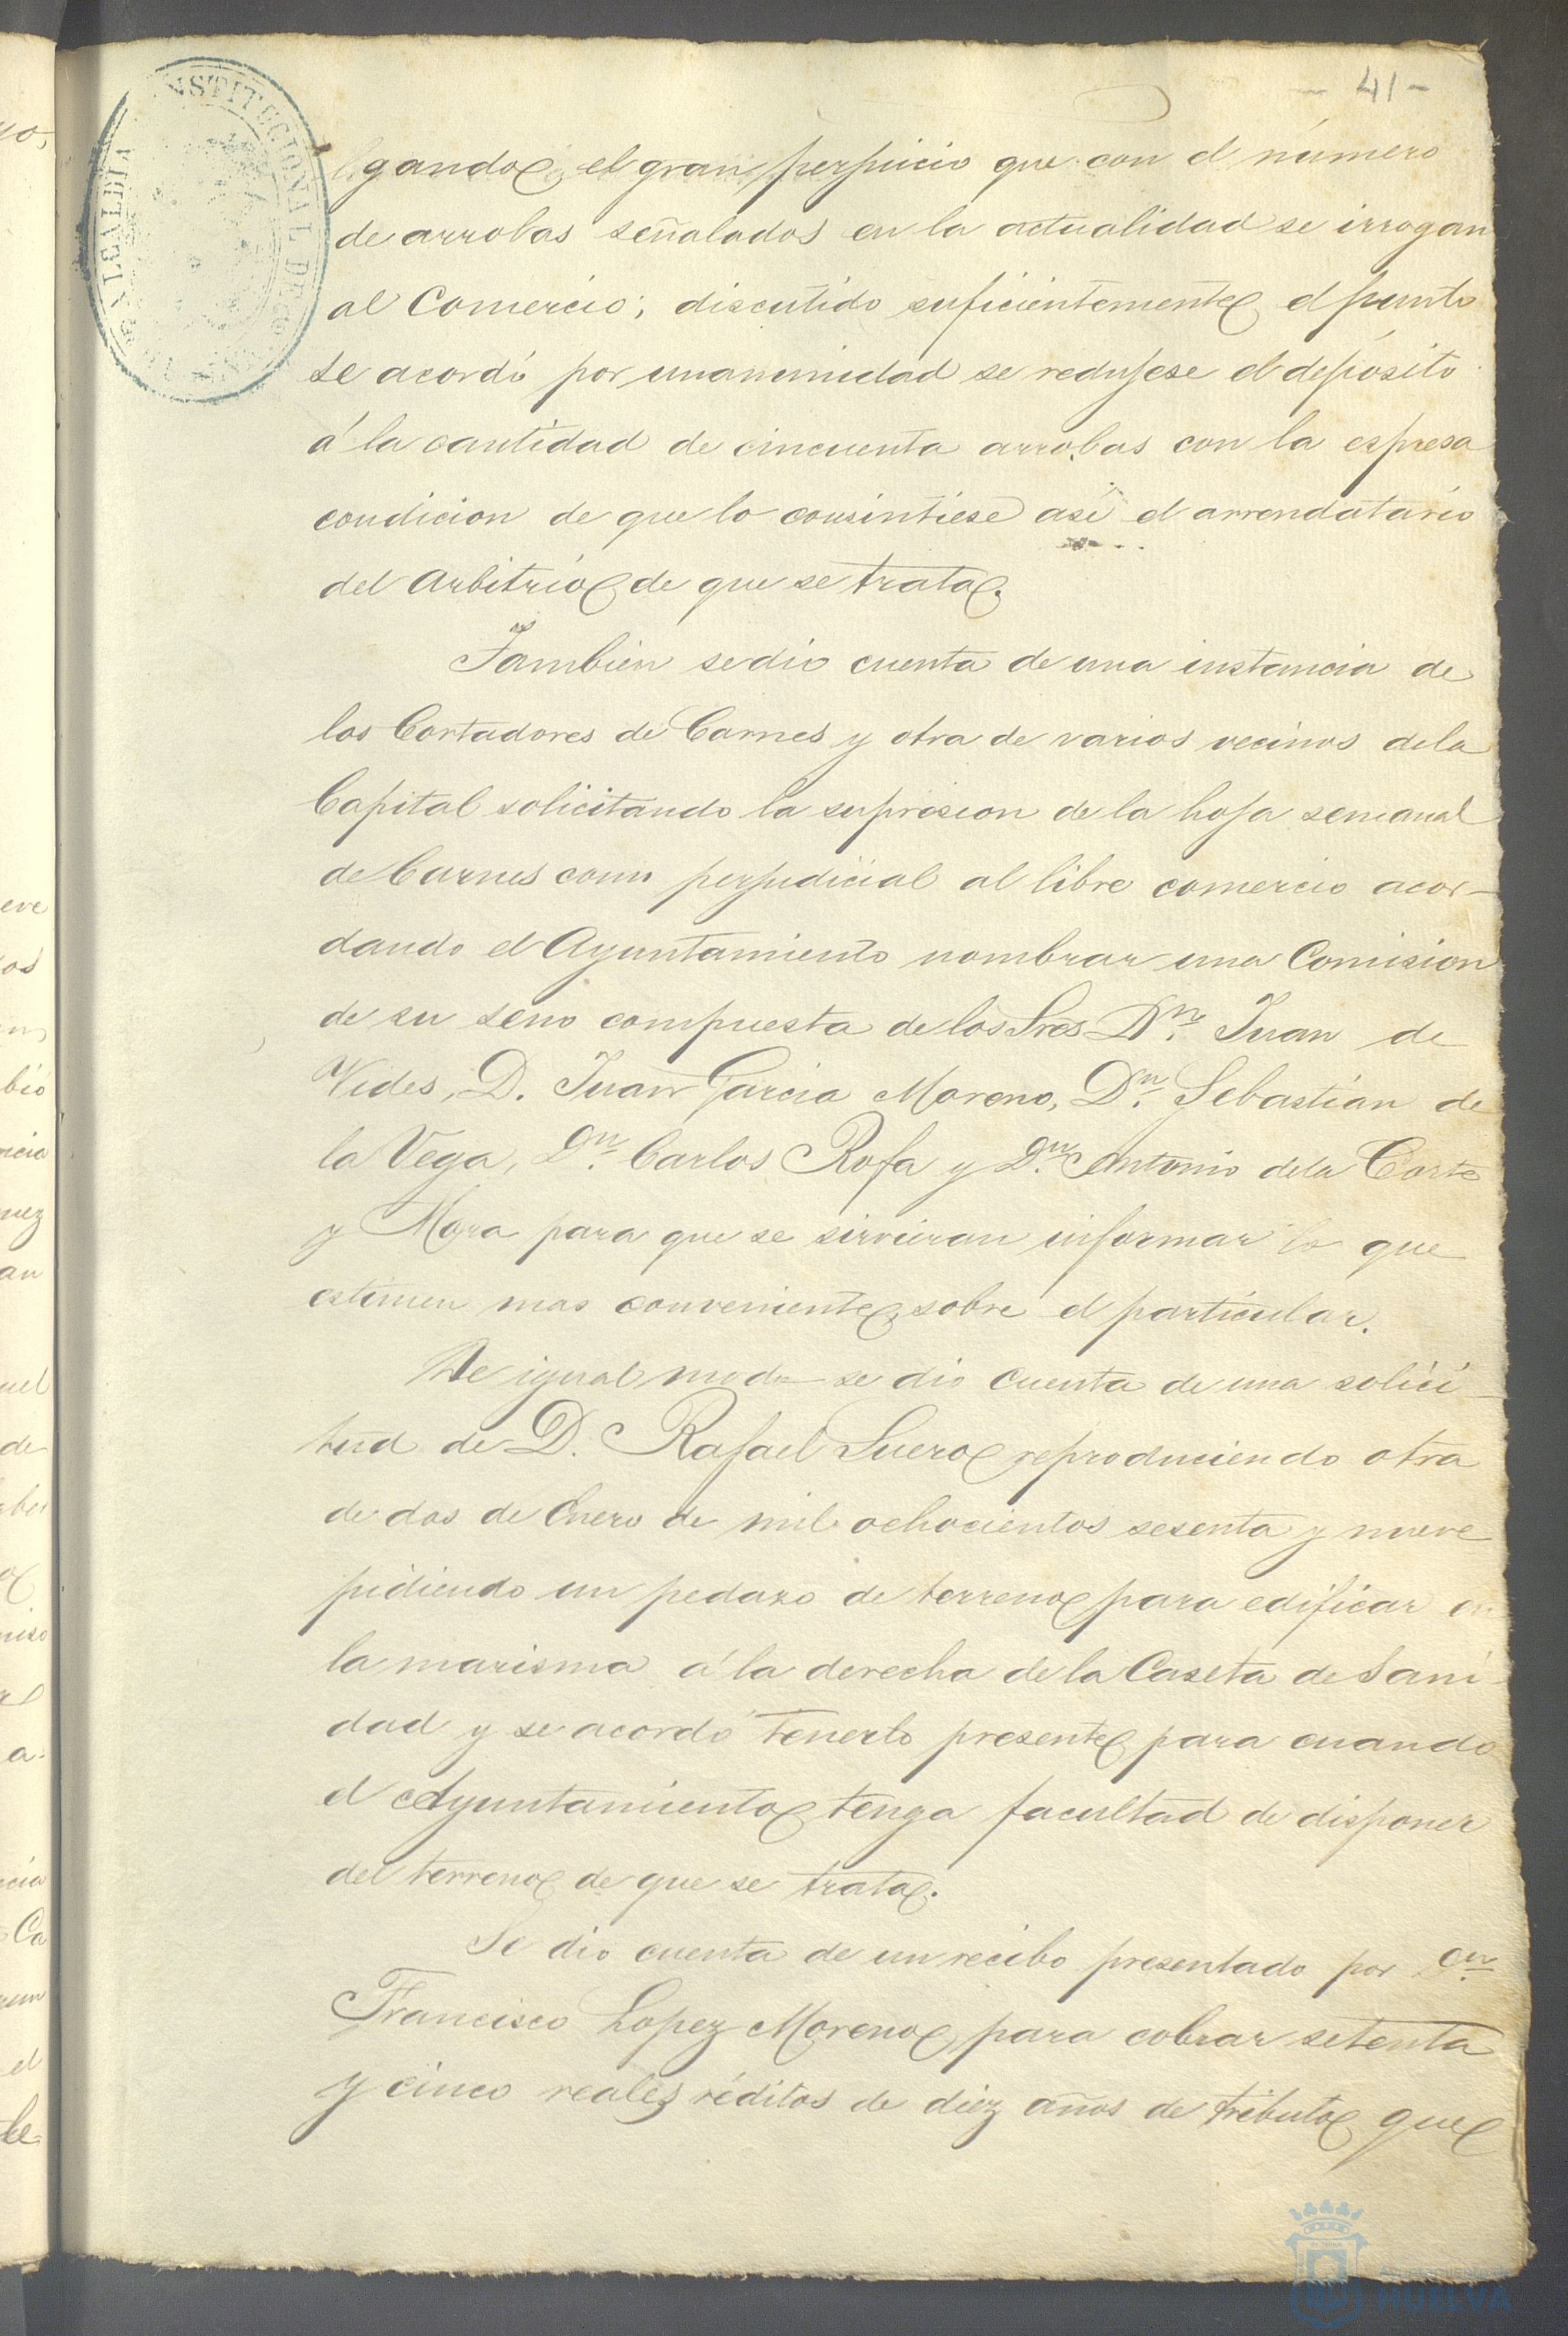 - 41 -
ALCALDIA CONSTITUCIONAL DE
gando el gran perjuicio que con el número
de arrobas señalados en la actualidad se irrogan
al Comercio; discutido suficientemente el punto
se acordó por unanimidad se redujese el depósito
á la cantidad de cincuenta arrobas con la espresa
condicion de que lo consintiese así el arrendatario
del Arbitrio de que se trata.
Tambien se dio cuenta de una instancia de
los Cortadores de Carnes y otra de varios vecinos de la
Capital solicitando la supresion de la hoja semanal
de Carnes como perjudicial al libre comercio acor-
dando el Ayuntamiento nombrar una Comision
de su seno compuesta de los Sres Dn. Juan de
Vides, D. Juan Garcia Moreno, Dn. Sebastian de
la Vega, Dn. Carlos Rofa y Dn. Antonio de la Corte
y Mora para que se sirvieran informar lo que
estimen mas conveniente sobre el particular.
De igual modo se dio cuenta de una solici-
tud de D. Rafael Suero reproduciendo otra
de dos de Enero de mil ochocientos sesenta y nueve
pidiendo un pedazo de terreno para edificar en
la marisma á la derecha de la Caseta de Sani-
dad y se acordó tenerlo presente para cuando
el Ayuntamiento tenga facultad de disponer
del terreno de que se trata.
Se dio cuenta de un recibo presentado por Dn.
Francisco Lopez Moreno para cobrar setenta
y cinco reales réditos de diez años de tributo que
HUELVA